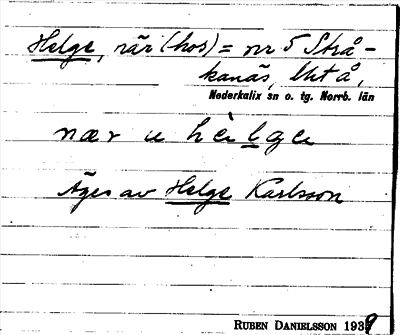 Helge, när (hos) = nr 5 Strå-
kanäs, Ytå,
Nederkalix sn o. tg. Norrb. län
nær u hèlge
Äges av Helge Karlsson
RUBEN DANIELSSON 1939